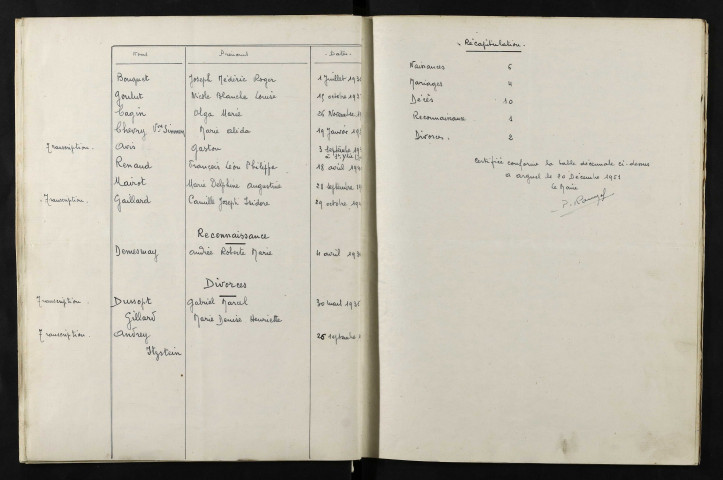 Noms Prénoms Dates
Bouquet Joseph Médéric Roger 1 Juillet 193
Goulut Nicole Blanche Louise 15 octobre 193
Olga Marie 26 Novembre
Chevry Vve Simon Marie alida 19 Janvier 19
Transcription. Avis Gaston 3 septembre 19
Renaud François Léon Philippe 18 avril 194
Mairot Marie Delphine Augustine 28 septembre 19
Transcription. Gaillard Camille Joseph Isidore 29 octobre 194
Reconnaissance
Demesmay Andrée Roberte Marie 4 avril 193
Divorces
Transcription. Dussopt Gabriel Marcel 30 mars 193
Gillard Marie Denise Henriette
Transcription. Andrey 26 septembre
Ilgstein
- Récapitulation -
Naissances 6
Mariages 4
Décès 10
Reconnaissance 1
Divorces. 2
Certifiée conforme la table décennale ci-dessus
à Arguel le 20 Décembre 1951
Le Maire